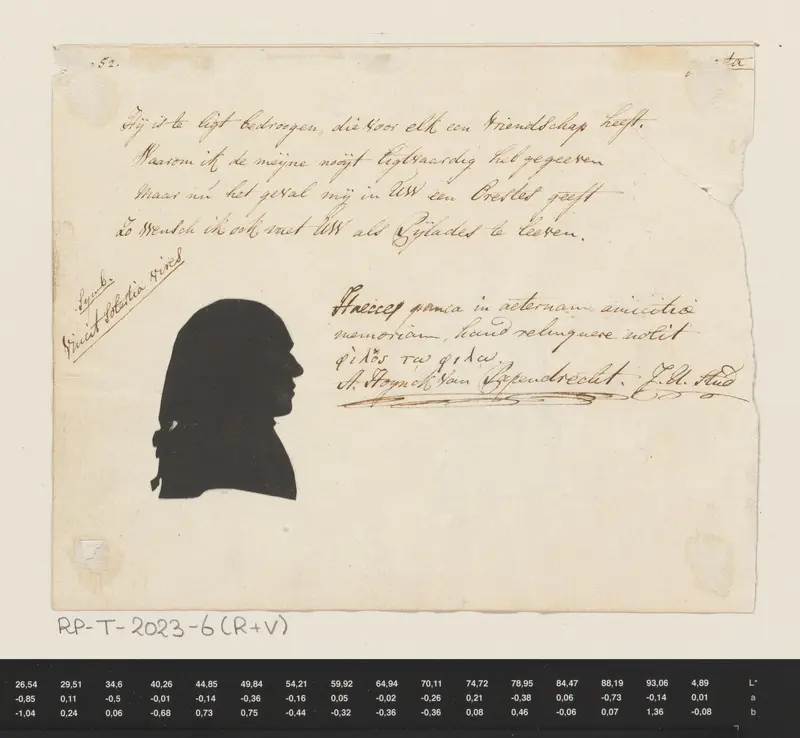 52.
Hij is te ligt bedroogen, die voor elk een vriendschap heeft.
Waarom ik de meijne nooijt ligtvaardig heb gegeeven
Maar nu het geval mij in UW een Orestes geeft
Zo wensch ik ook met UW als Pijlades te leeven.
Symb.
Vincit Solertia vires
Haecce pauca in aeternam amicitiæ
memoriam, haud relinquere nolit
φιλὸς τω φιλω.
A. Hoynck van Papendrecht. J. U. Stud
RP-T-2023-6(R+V)
26,54 29,51 34,6 40,26 44,85 49,84 54,21 59,92 64,94 70,11 74,72 78,95 84,47 88,19 93,06 4,89 L*
-0,85 0,11 -0,5 -0,01 -0,14 -0,36 -0,16 0,05 -0,02 -0,26 0,21 -0,38 0,06 -0,73 -0,14 0,01 a
-1,04 0,24 0,06 -0,68 0,73 0,75 -0,44 -0,32 -0,36 -0,36 0,08 0,46 -0,06 0,07 1,36 -0,08 b